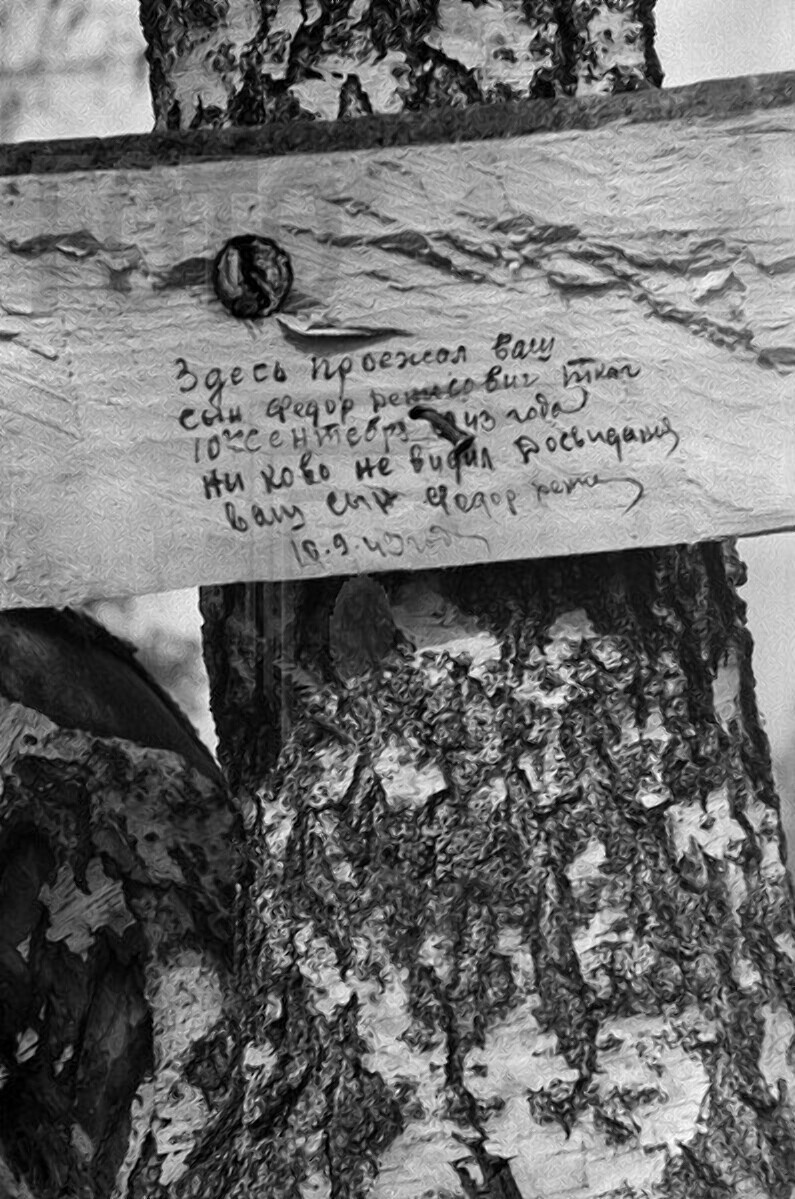 Здесь проежал ваш
сын Федор Денисович Ткач
10го Сентебря 43 года
ни ково не видил Досвидания
ваш сын Федор
10.9.43 года